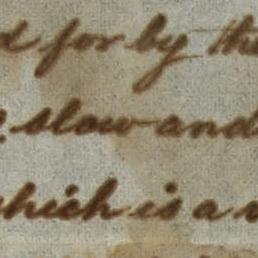 d for by the
slow and
which is a